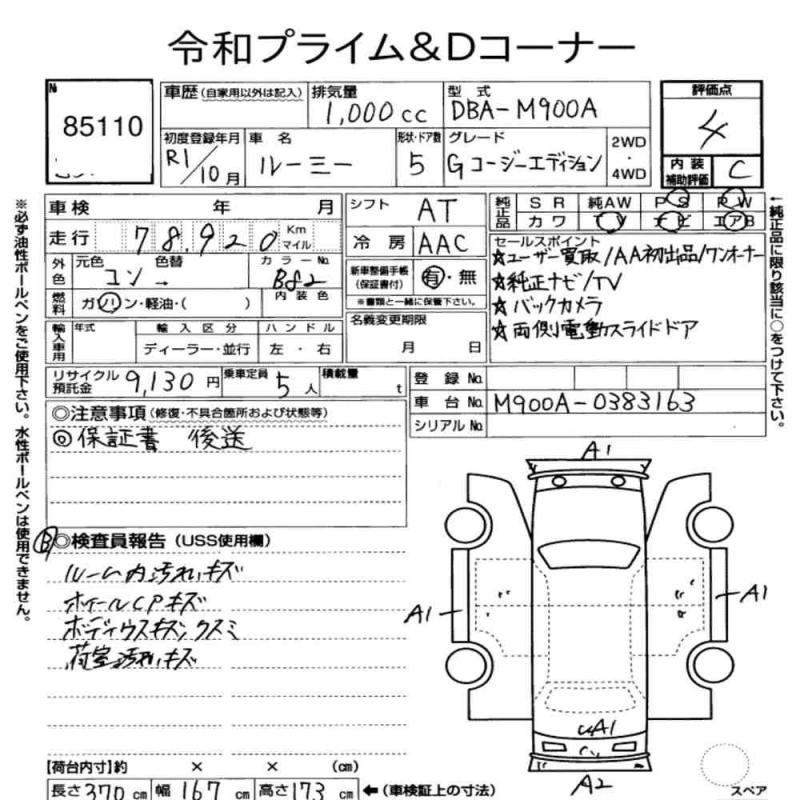 令和プライム&Dコーナー
№ 85110
車歴（自家用以外は記入） 排気量 1,000 cc 型式 DBA-M900A 評価点 4
初度登録年月 R1/10月 車名 ルーミー 形状・ドア数 5 グレード G コージーエディション 2WD・4WD 内装補助評価 C
車検 年 月 シフト AT 純正品 SR 純AW PS PW
カワ TV ナビ エアB
走行 78,920 Km マイル 冷房 AAC
セールスポイント
☆ユーザー買取/AA初出品/ワンオーナー
☆純正ナビ/TV
☆バックカメラ
☆両側電動スライドドア
外色 元色 コン 色替 → カラーNo. B82 新車整備手帳（保証書付） 有・無
※書類と一緒に保管下さい。
燃料 ガソリン・軽油・( ) 内装色
名義変更期限 月 日
輸入車用 年式 輸入区分 ハンドル
ディーラー・並行 左・右
リサイクル預託金 9,130円 乗車定員 5人 積載量 t
登録No.
車台No. M900A-0383163
シリアルNo.
◎注意事項（修復・不具合箇所および状態等）
◎保証書 後送
Ⓑ◎検査員報告（USS使用欄）
ルーム内汚れ、キズ
ホイールCPキズ
ボディウスキズ、クスミ
荷室汚れ、キズ
A1
A1
A1
A1
A2
スペア
【荷台内寸】約 × × (cm)
長さ370cm 幅167cm 高さ173cm ←（車検証上の寸法）
※必ず油性ボールペンをご使用下さい。水性ボールペンは使用できません。
←純正品に限り該当に○をつけて下さい。